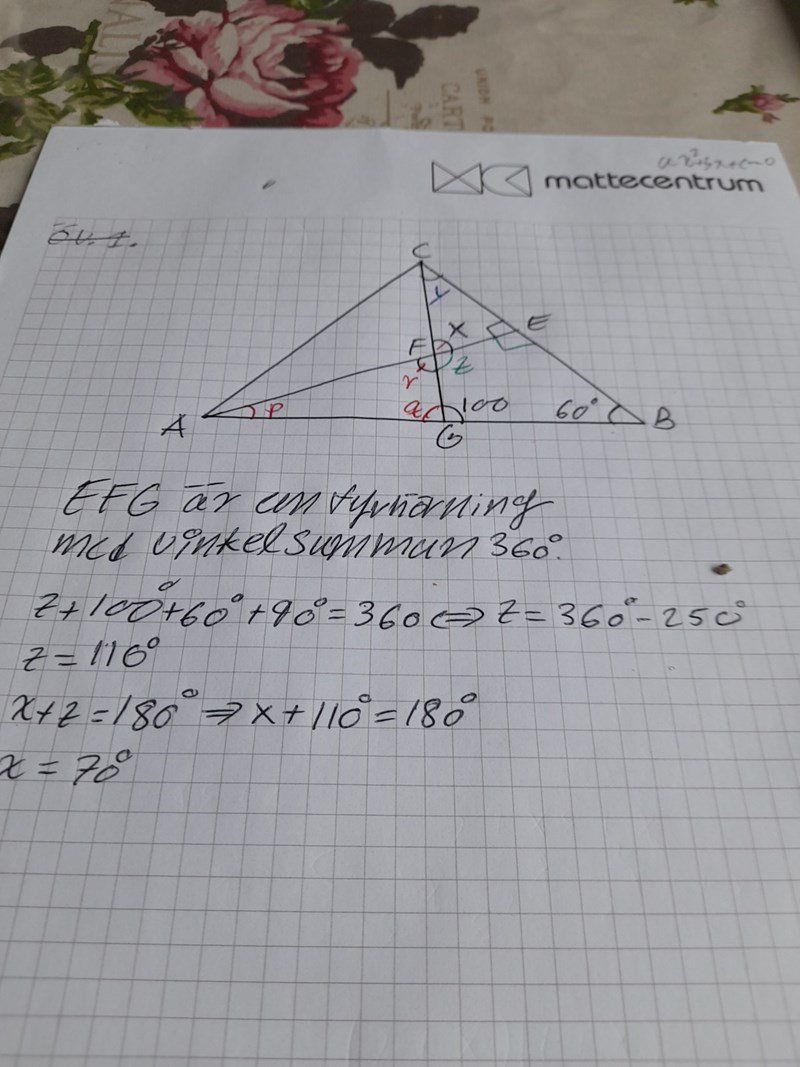 mattecentrum
Öv. 1.
C
y
E
x
F
z
r
A
p
a
100
60°
B
G
EFG är en fyrhörning
med vinkelsumman 360°.
z+100°+60°+90°=360 ⇔ z = 360°-250°
z = 110°
x+z=180° ⇒ x+110°=180°
x = 70°